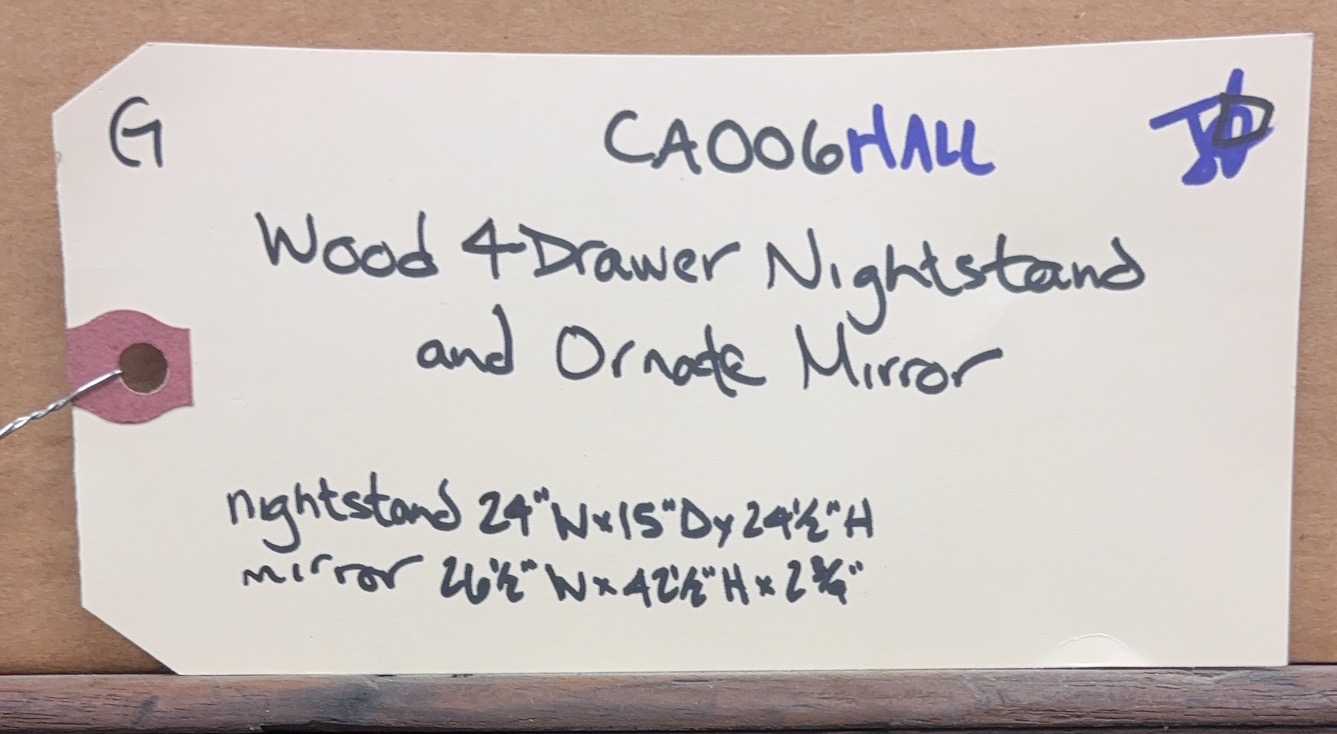 G CA006HALL
Wood 4 Drawer Nightstand
and Ornate Mirror
nightstand 24"W x 15"D x 24½"H
mirror 26½"W x 42½"H x 2¾"